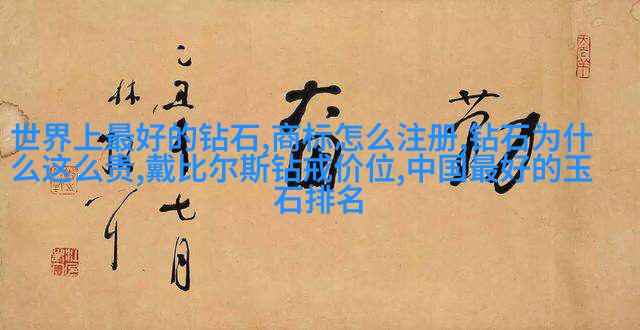 世界上最好的钻石,商标怎么注册,钻石为什
么这么贵,戴比尔斯钻戒价位,中国最好的玉
石排名
乙丑年七月
林